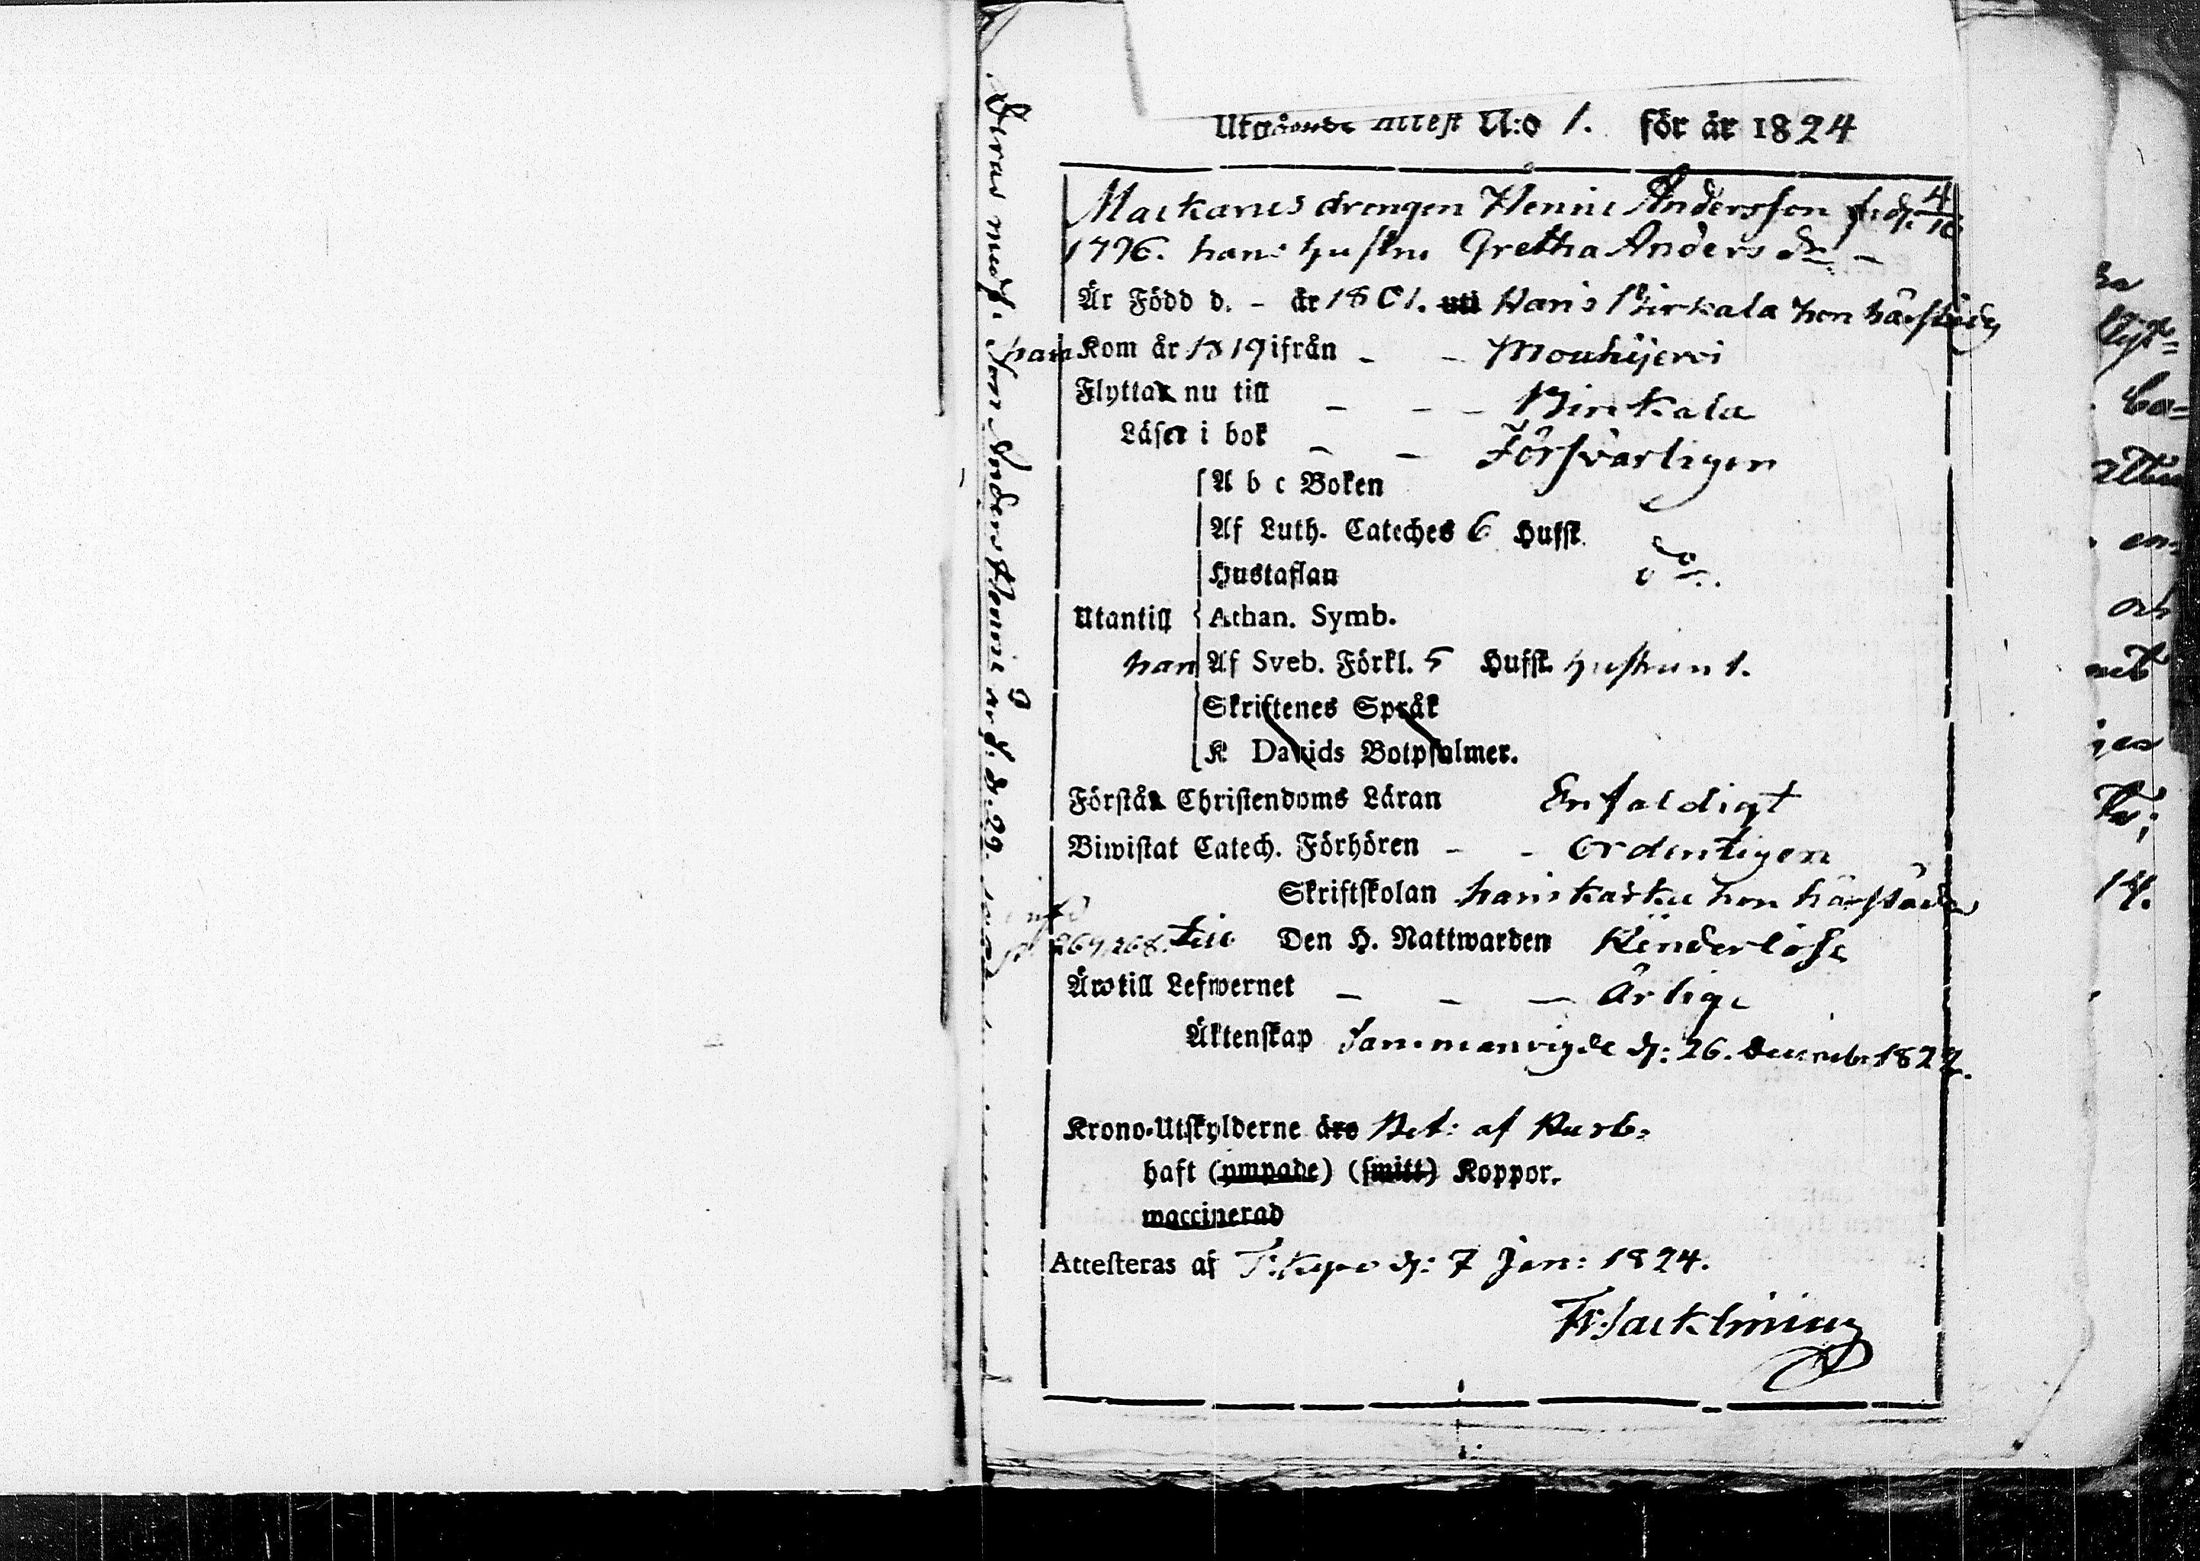 Utgående Attest N:o 1. för år 1824
Markanes drengen Henric Andersson föd. d. 4/10
1796. hans hustru Gretha Anders dr. –
Är Född d. – år 1801. uti Han i Birkala hon härstädes
han Kom år 1819 ifrån – – Mouhijervi
Flyttar nu till – – – Birkala
Läser i bok – – Försvarligen
A b c Boken
Af Luth. Cateches 6 Hufst.
Hustaflan do.
Utantill Athan. Symb.
han Af Sveb. Förkl. 5 Hufst. hustrun 1.
Skriftenes Språk
K Davids Botpsalmer.
Förstår Christendoms Läran Enfaldigt
Biwistat Catech. Förhören – – ordentligen
Skriftskolan han i Karku hon härstädes
267, 268. Till Den H. Nattwarden Hinderlöse
Äro till Lefwernet – – – Ärlige
Äktenskap Sammanvigde d: 26. decemb. 1822.
Krono-Utskylderne äro Bet: af Husb:
haft (ympade) (smitt) Koppor.
waccinerad
Attesteras af d: 7 Jan: 1824.
Deras medf. Son Anders Henric är f. d. 29.